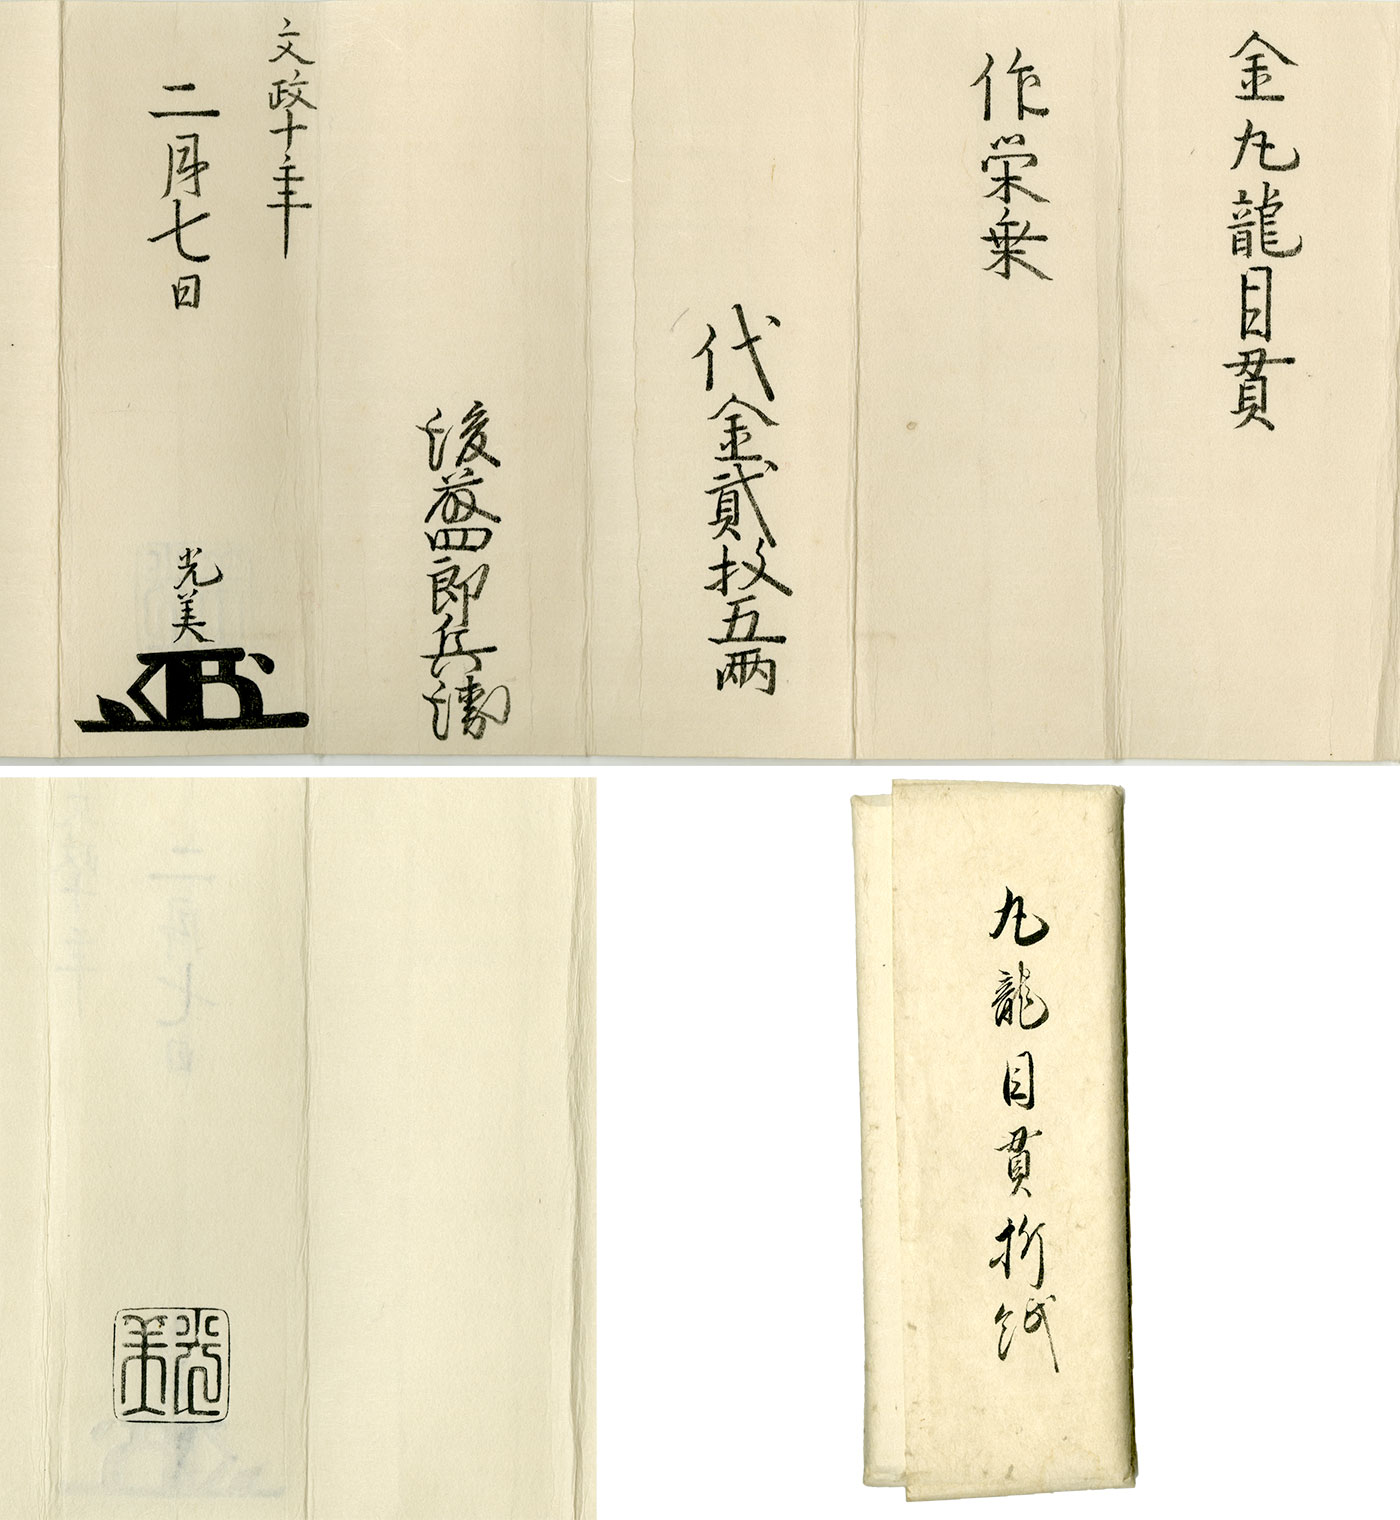 金九龍目貫
作栄乗
代金貳枚五両
後藤四郎兵衛
文政十年
二月七日
光美
光美
九龍目貫折紙